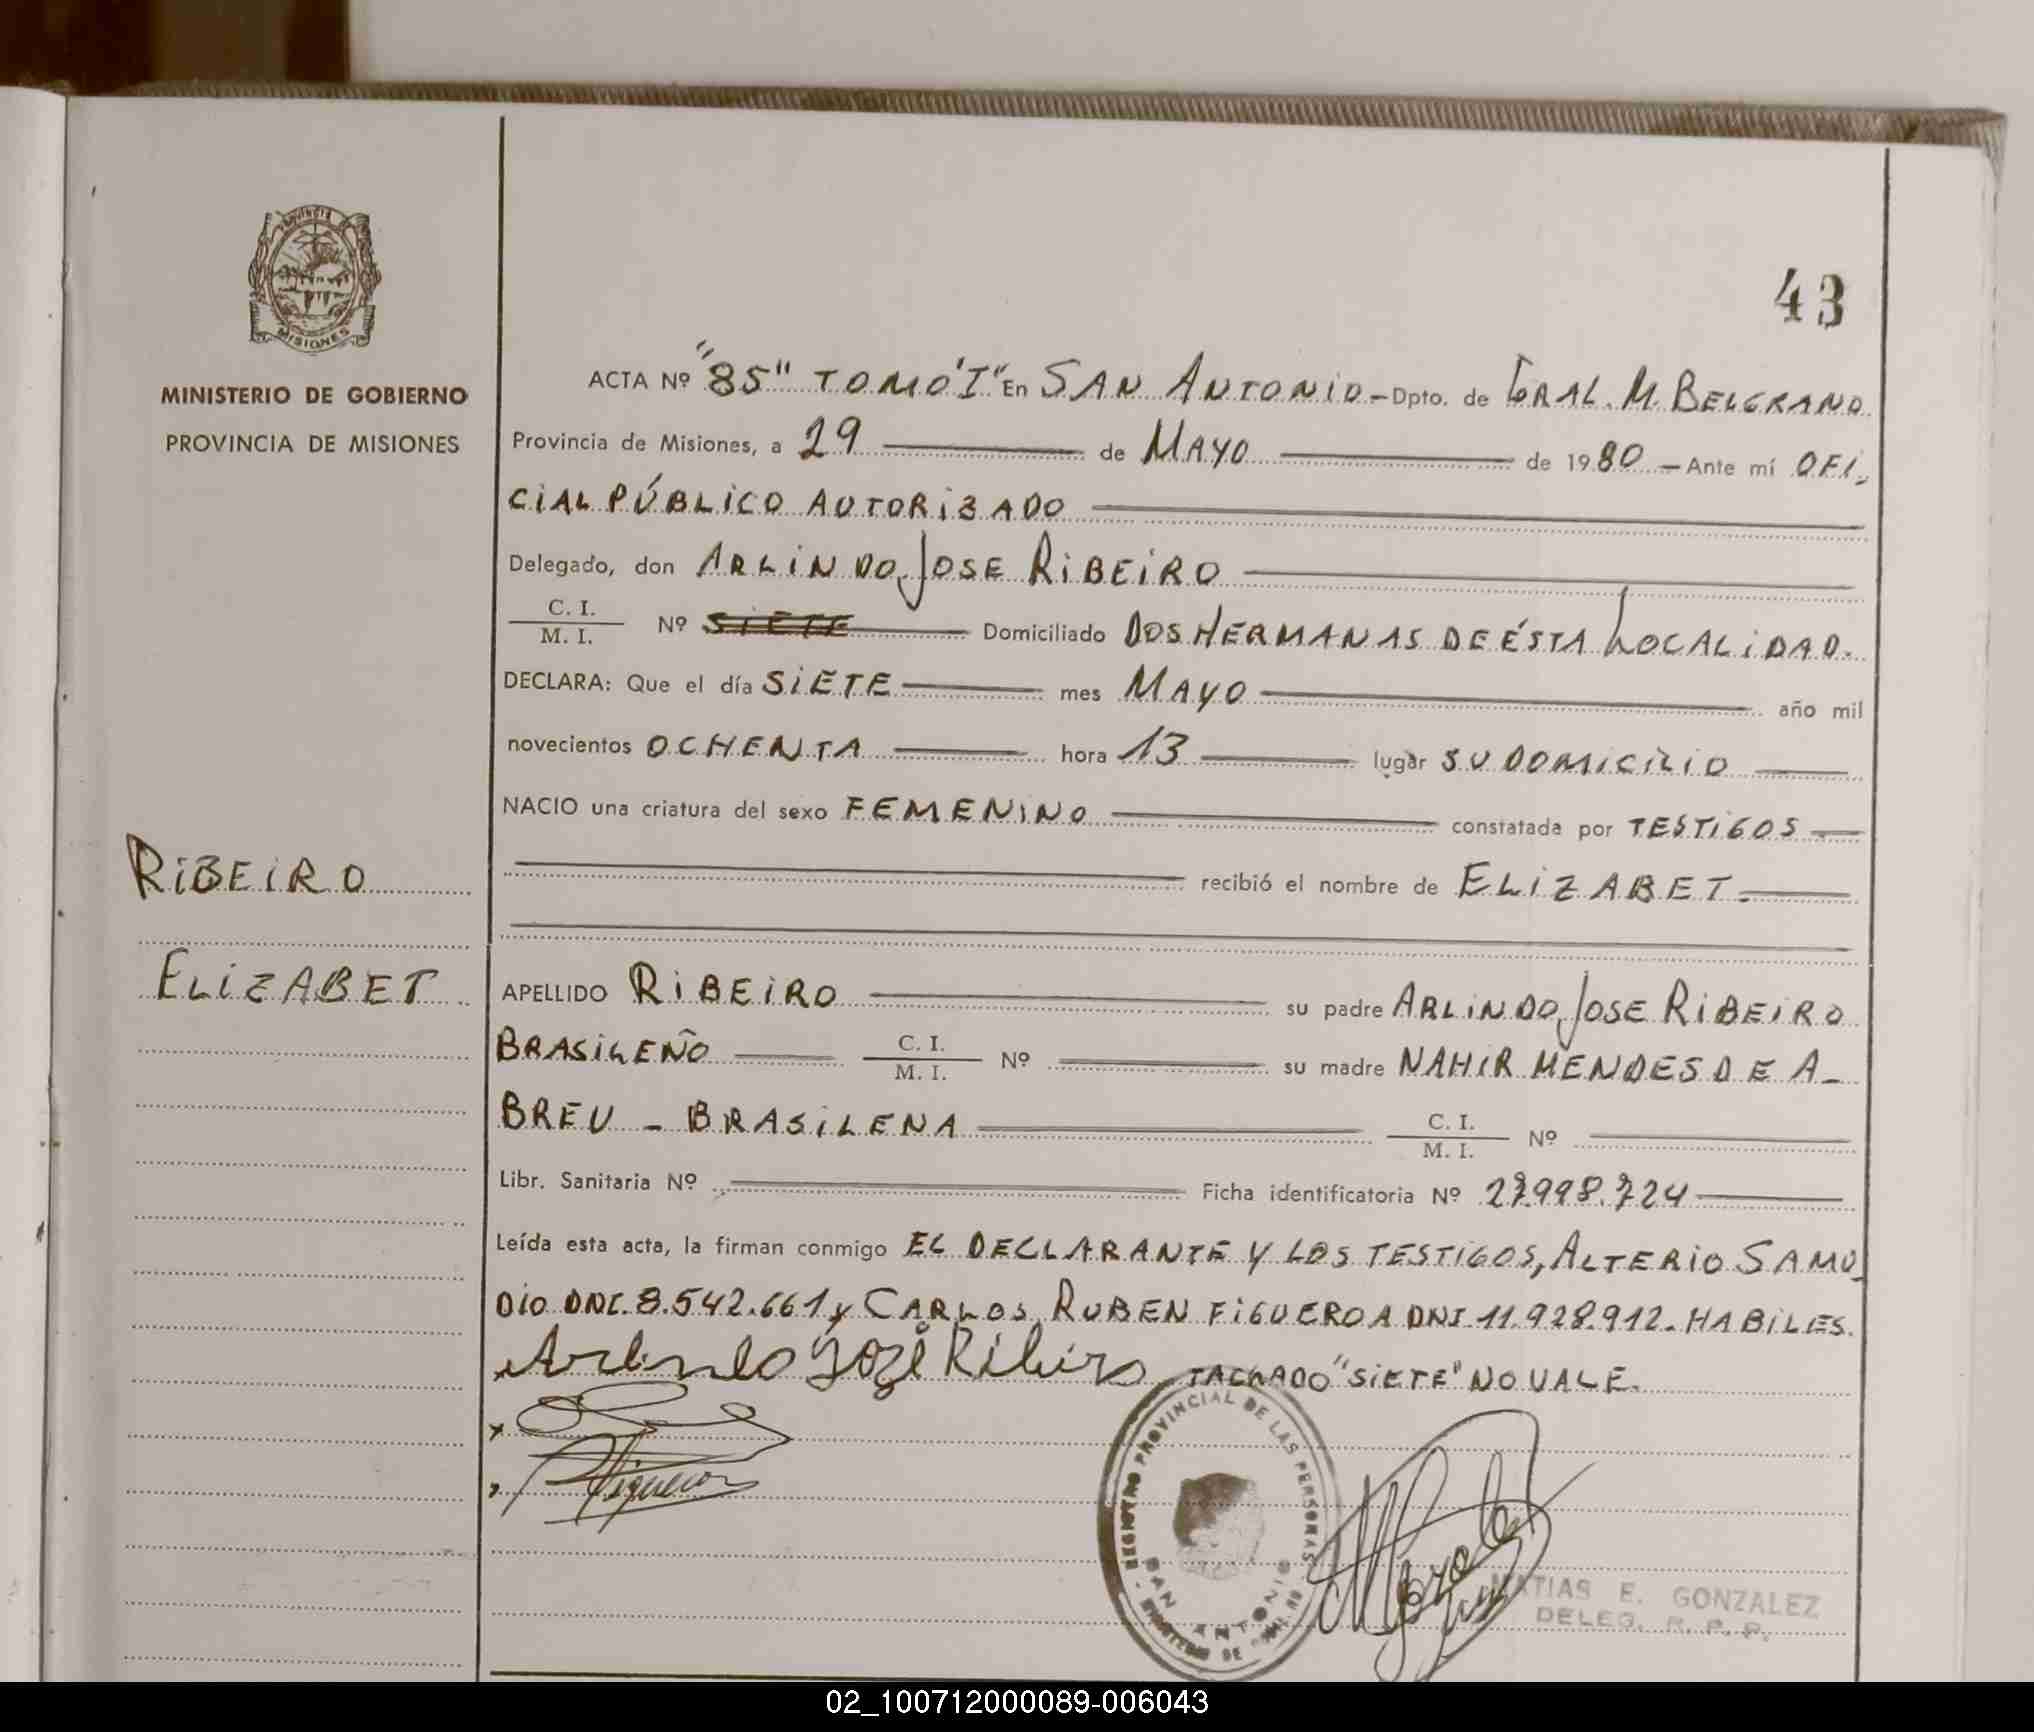 43
PROVINCIA
MISIONES
MINISTERIO DE GOBIERNO
PROVINCIA DE MISIONES
RIBEIRO
ELIZABET
ACTA Nº "85" TOMO "I" En SAN ANTONIO - Dpto. de GRAL. M. BELGRANO
Provincia de Misiones, a 29 de MAYO de 1980 - Ante mí OFI-
CIAL PÚBLICO AUTORIZADO
Delegado, don ARLINDO JOSE RIBEIRO
C. I.
M. I. Nº SIETE Domiciliado DOS HERMANAS DE ÉSTA LOCALIDAD.
DECLARA: Que el día SIETE mes MAYO año mil
novecientos OCHENTA hora 13 lugar SU DOMICILIO
NACIO una criatura del sexo FEMENINO constatada por TESTIGOS
recibió el nombre de ELIZABET.
APELLIDO RIBEIRO su padre ARLINDO JOSE RIBEIRO
BRASILEÑO C. I. M. I. Nº su madre NAHIR MENDES DE A-
BREU - BRASILENA C. I. M. I. Nº
Libr. Sanitaria Nº Ficha identificatoria Nº 27.998.724
Leída esta acta, la firman conmigo EL DECLARANTE Y LOS TESTIGOS, ALTERIO SAMU-
DIO DNI. 8.542.661 y CARLOS RUBEN FIGUEROA DNI 11.928.912. HABILES.
Arlindo José Ribeiro TACHADO "SIETE" NO VALE.
REGISTRO PROVINCIAL DE LAS PERSONAS
SAN ANTONIO
MINISTERIO DE
MATIAS E. GONZALEZ
DELEG. R. P. P.
02_100712000089-006043